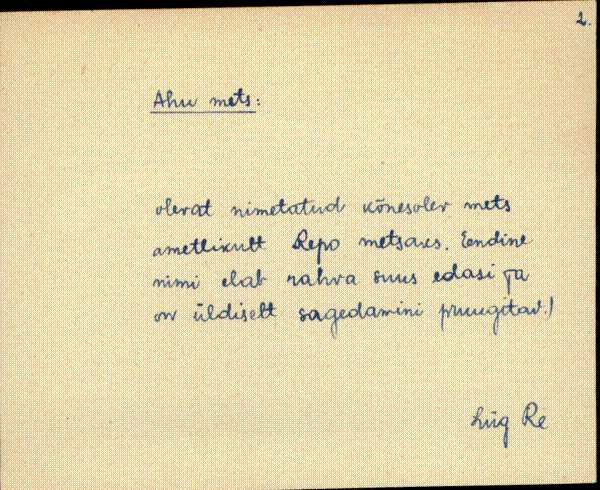 2.
Ahu mets:
olevat nimetatud kõnesolev mets
ametlikult Repo metsaks. Eendine
nimi elab rahva suus edasi ja
on üldiselt sagedamini pruugitav.)
Lüg Re